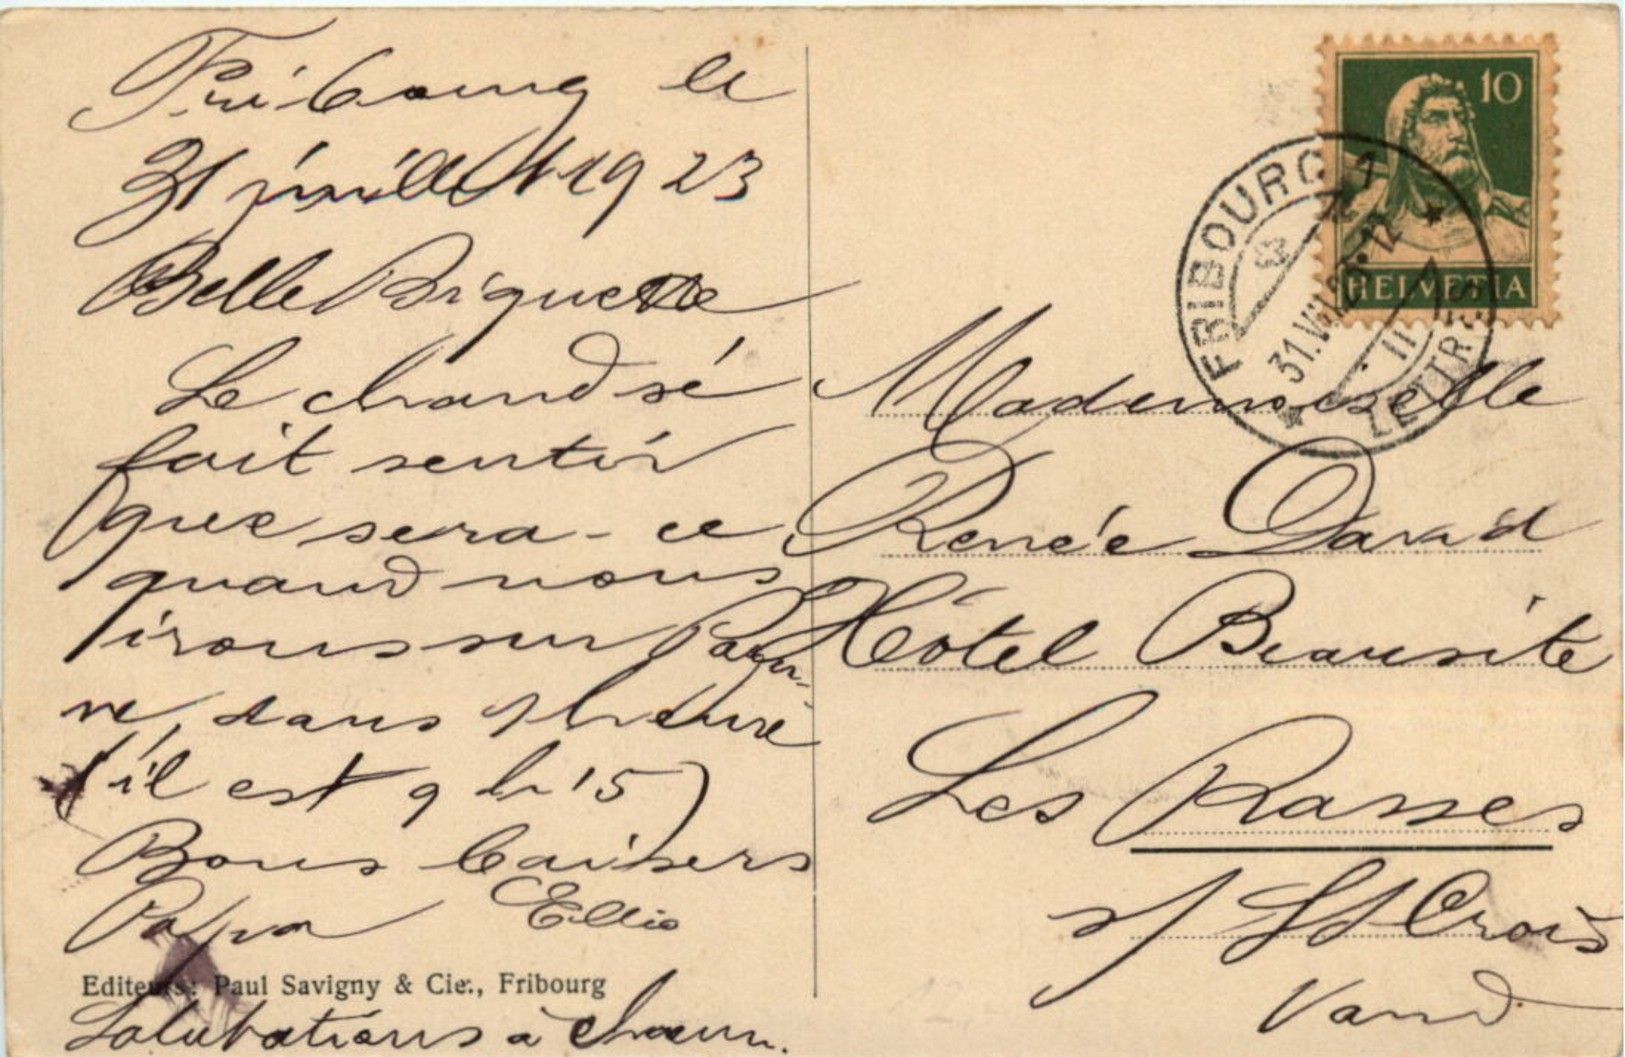 Fribourg le
31 juillet 1923
Belle Briquette
Le chaud sé
fait sentir
que sera-ce
quand nous
irons sur Payer-
ne, dans 1 heure
(il est 9 h 15)
Bons baisers
Papa Ellio
Editeurs: Paul Savigny & Cie., Fribourg
Salutations à chacun.
10
HELVETIA
FRIBOURG 1
31.VII.23.-12
LETTRES
Mademoiselle
Renée David
Hôtel Beausite
Les Rasses
s/ St Croix
Vaud